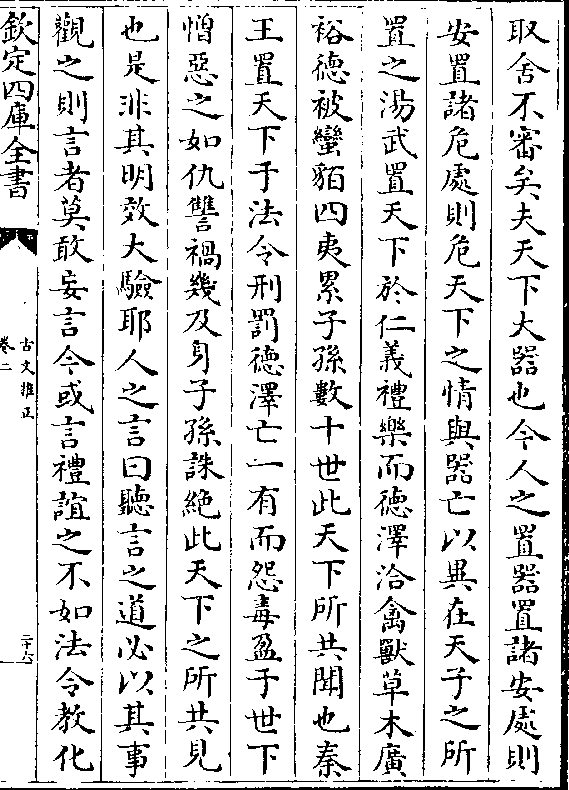 取舍不審矣夫天下大器也今人之置器置諸安處則
安置諸危處則危天下之情與器亡以異在天子之所
置之湯武置天下於仁義禮樂而德澤洽禽獸草木廣
裕德被蠻貊四夷累子孫數十世此天下所共聞也秦
王置天下于法令刑罰德澤亡一有而怨毒盈于世下
憎惡之如仇讐禍幾及身子孫誅絶此天下之所共見
也是非其明效大驗耶人之言曰聽言之道必以其事
觀之則言者莫敢妄言今或言禮誼之不如法令教化
欽定四庫全書
古文雅正
卷二
二十六